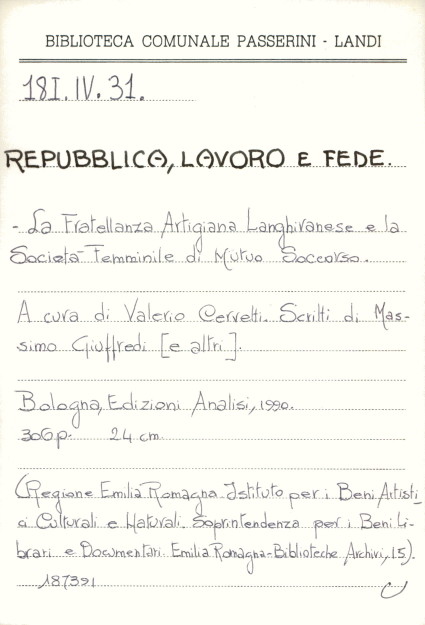 BIBLIOTECA COMUNALE PASSERINI - LANDI
18I.IV.31.
REPUBBLICA, LAVORO E FEDE.
- La Fratellanza Artigiana Langhiranese e la
Società Femminile di Mutuo Soccorso.
A cura di Valerio Cervetti. Scritti di Mas-
simo Giuffredi [e altri].
Bologna, Edizioni Analisi, 1990.
306p. 24 cm.
(Regione Emilia Romagna. Istituto per i Beni Artisti_
ci Culturali e Naturali. Soprintendenza per i Beni Li-
brari e Documentari. Emilia Romagna-Biblioteche Archivi, 15).
187391